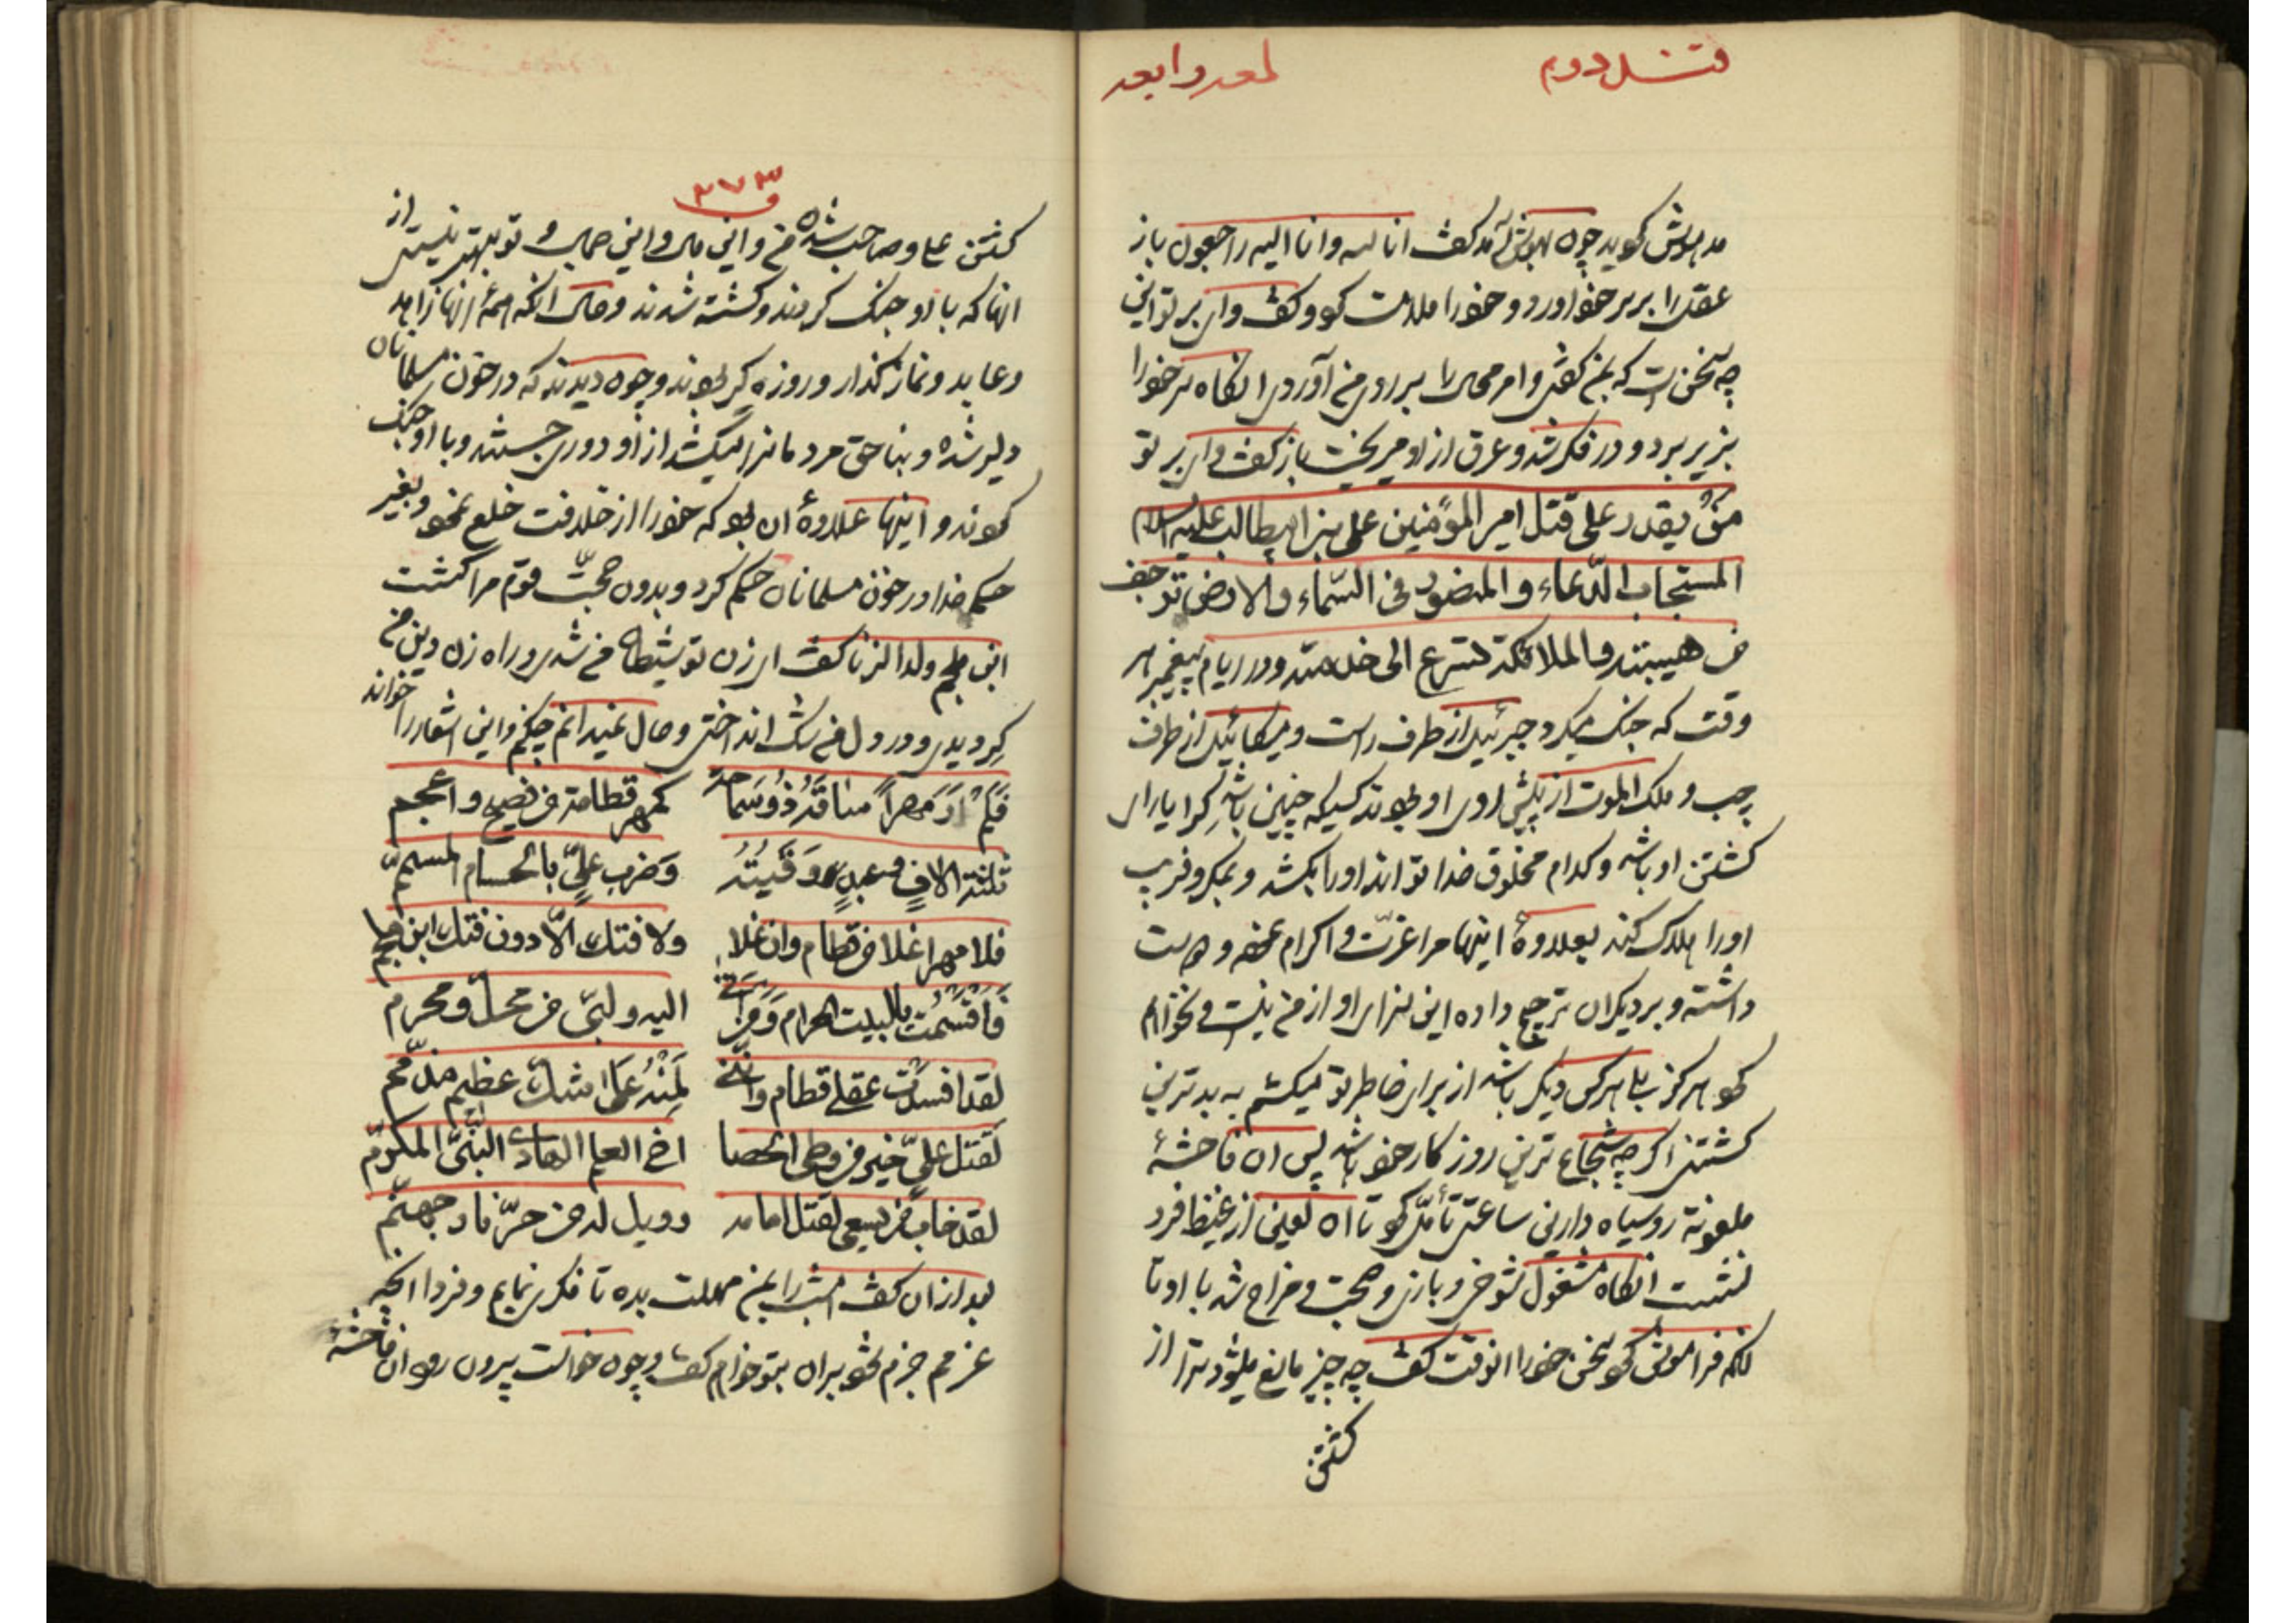 لمعه رابعه
مدهوش کوید چون بهوش آمد کفت انا لله وانا الیه راجعون باز
عقل را بر سر خود آورد و خود را ملامت کرد و کفت وای بر تو این
چه سخن است که بمن کفتی و امر محال را بر روی من آوردی انکاه سر خود را
بزیر برد و در فکر شد و عرق از او میریخت باز کفت وای بر تو
من یقدر علی قتل امیر المؤمنین علی بن ابیطالب علیه السلام
المستجاب الدعاء والمنصور فی السماء والارض ترجف
من هیبته والملائکة تسرع الی خدمته و در ایام پیغمبر هر
وقت که جنک میکرد جبرئیل از طرف راست و میکائیل از طرف
چپ و ملک الموت از پیش روی او بودند کسیکه چنین باشد کرا یارای
کشتن او باشد و کدام مخلوق خدا تواند او را بکشد و بمکر و فریب
او را هلاک کند بعلاوۀ اینها مرا عزت و اکرام نموده و دوست
داشته و بر دیکران ترجیح داده این سزای او از من نیست و نخواهم
کرد هرکز بلی هر کس دیکر باشد از برای خاطر تو میکشم به بدترین
کشتنی اکر چه شجاع ترین روزکار خود باشد پس ان فاحشۀ
ملعونۀ روسیاه دارین ساعتی تأمل کرد تا ان لعین از غیظ فرو
نشست انکاه مشغول شوخی و بازی و صحبت و مزاح شد با او تا
انکه فراموش کرد سخن خود را انوقت کفت چه چیز مانع میشود ترا از
کشتن
۳۷۳
کشتن علی و صاحب شدن من و این مال و این جمال و تو بهتر نیستی از
انها که با او جنک کردند و کشته شدند و حال انکه همۀ انها زاهد
وعابد ونماز کذار و روزه کیر بودند و چون دیدند که در خون مسلمانان
دلیر شده و بناحق مردمانرا میکشد از او دوری جستند و با او جنک
کردند و اینها علاوۀ ان بود که خود را از خلافت خلع نمود و بغیر
حکم خدا در خون مسلمانان حکم کرد و بدون حجت قوم مرا کشت
ابن ملجم ولد الزنا کفت ای زن تو شیطان من شدی و راه زن دین من
کردیدی و در دل من شک انداختی و حال نمیدانم چکنم و این اشعار را خواند
فلم ار مهراً ساقه ذو سماحة کمهر قطامة من فصیح واعجم
ثلثة الاف وعبد وقینة وضرب علی بالحسام المسمم
فلا مهر اغلا من قطام وان غلا ولا فتک الا دون فتک ابن ملجم
فاقسمت بالبیت الحرام ومن اتی الیه ولبی من محل ومحرم
لقد افسدت عقلی قطام واننی لمنها علی شک عظیم مذمم
لقتل علی خیر من وطی الحصا اخ العلم الهادی النبی المکرم
لقد خاب من یسعی لقتل امامه وویل له من حر نار جهنم
بعد ازان کفت امشب را بمن مهلت بده تا فکری نمایم و فردا انچه
عزمم جزم شود بران بتو خواهم کفت و چون خواست بیرون رود ان فاحشۀ